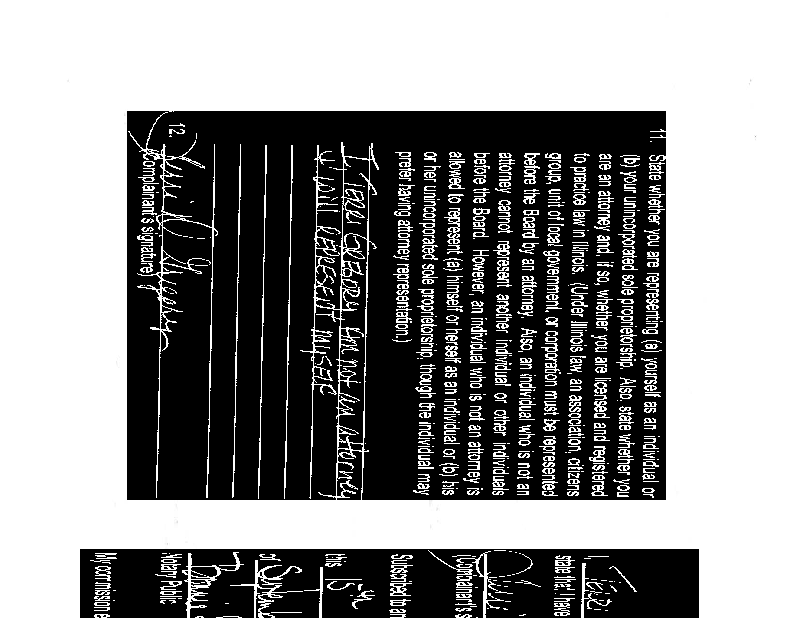 11. State whether you are representing (a) yourself as an individual or
(b) your unincorporated sole proprietorship. Also, state whether you
are an attorney and, if so, whether you are licensed and registered
to practice law in Illinois. (Under Illinois law, an association, citizens
group, unit of local government, or corporation must be represented
before the Board by an attorney. Also, an individual who is not an
attorney cannot represent another individual or other individuals
before the Board. However, an individual who is not an attorney is
allowed to represent (a) himself or herself as an individual or (b) his
or her unincorporated sole proprietorship, though the individual may
prefer having attorney representation.)
GREGORY Am not an attorney
I will REPRESENT MYSELF
12.
(Complainant's signature)
I,
state that I have
(Complainant's s
Subscribed to an
this 15th
of
Notary Public
My commission e